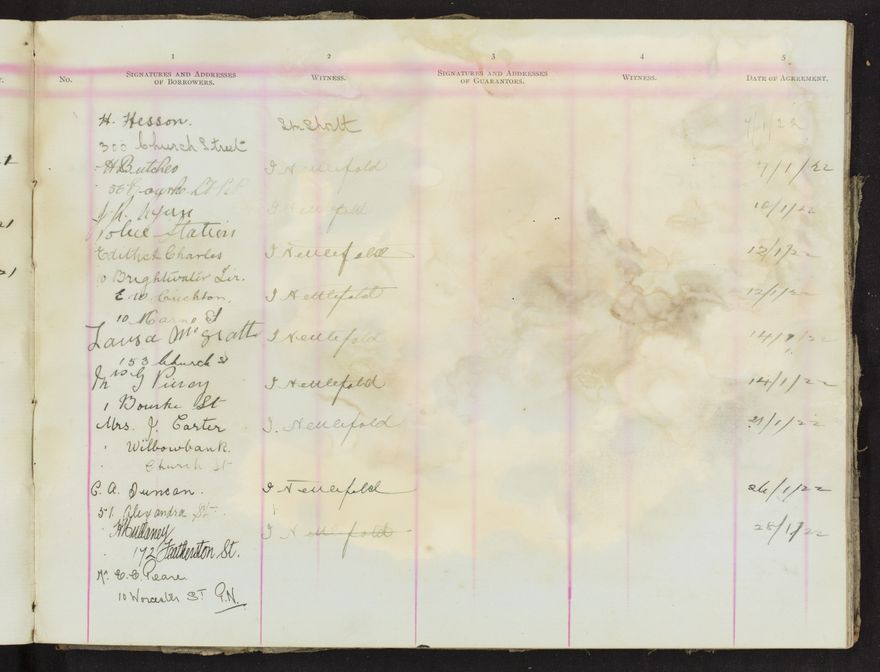 1 2 3 4 5
No. SIGNATURES AND ADDRESSES OF BORROWERS. WITNESS. SIGNATURES AND ADDRESSES OF GUARANTORS. WITNESS. DATE OF AGREEMENT.
H. Hesson. 7/1/22
300 Church Street
H Butcher I Nettlefold 7/1/22
56
Ryan I Nettlefold 10/1/22
Police Station
Edith Charles I Nettlefold 12/1/22
10 Brightwater Ter.
E. Crichton. I Nettlefold 12/1/22
10 St
Laura McGrath I Nettlefold 14/1/22
153 Church St
Mrs G I Nettlefold 14/1/22
1 Bourke St
Mrs. J. Carter I. Nettlefold 21/1/22
Willowbank
Church St
C. A. Duncan. I Nettlefold 26/1/22
51 Alexandra St.
Mullaney I Nettlefold 28/1/22
172 Featherston St.
Mr. E. E. Pearce
10 Worcester St P.N.